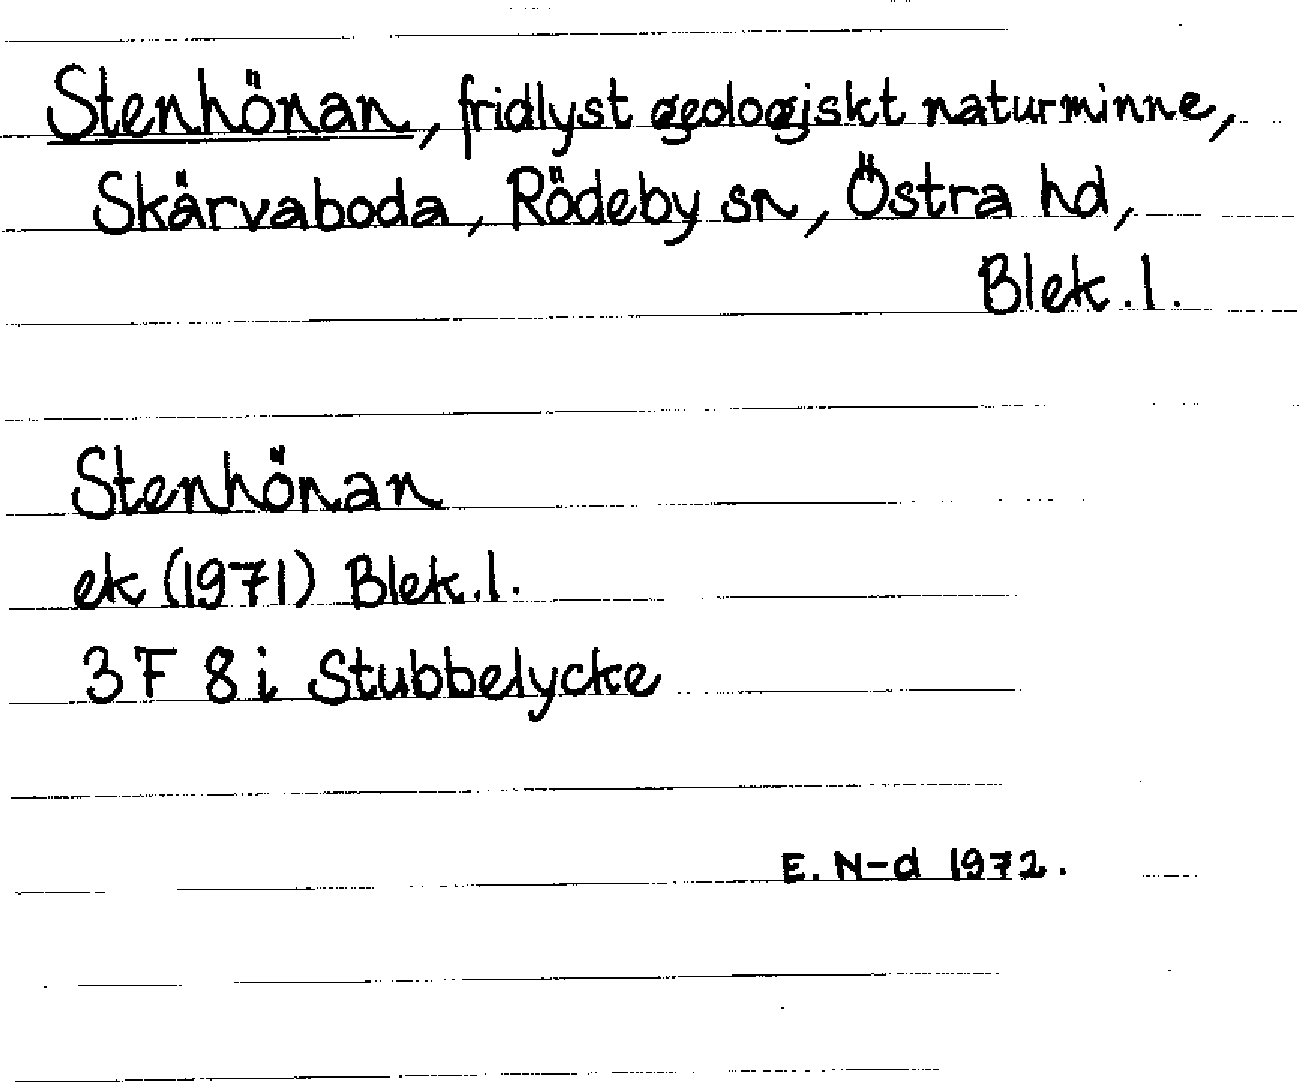 Stenhönan, fridlyst geologiskt naturminne,
Skärvaboda, Rödeby sn, Östra hd,
Blek. l.
Stenhönan
ek (1971) Blek. l.
3F 8i Stubbelycke
E. N-d 1972.